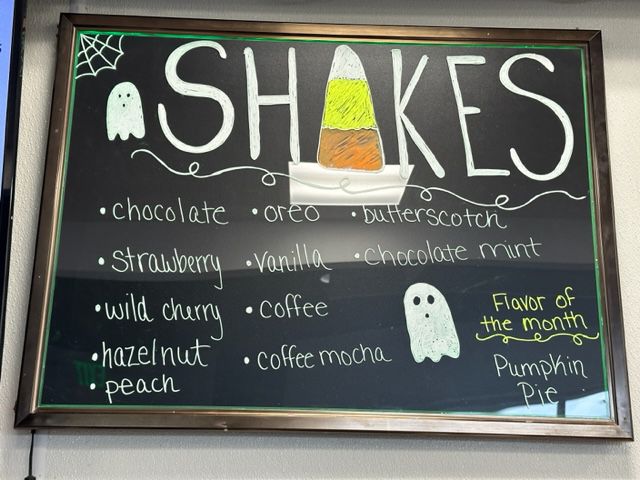 SHAKES
• chocolate
• oreo
• butterscotch
• strawberry
• vanilla
• chocolate mint
• wild cherry
• coffee
• hazelnut
• coffee mocha
• peach
Flavor of
the month
Pumpkin
Pie